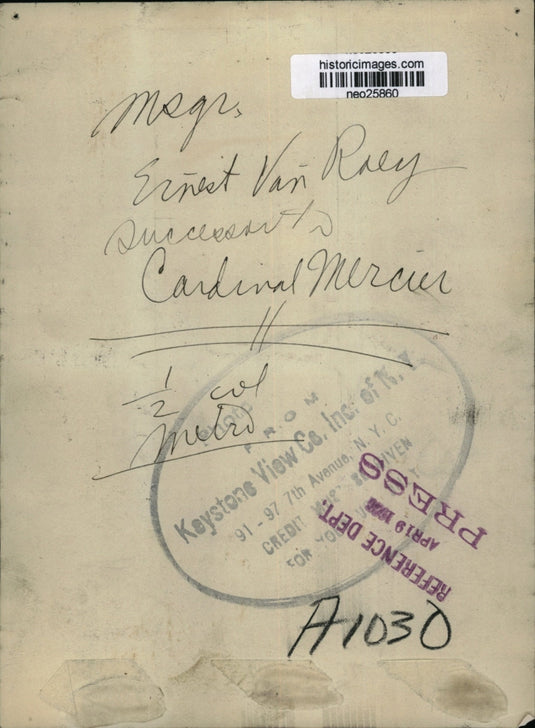 historicimages.com
neo25860
Msgr.
Ernest Van Roey
successor to
Cardinal Mercier
1/2 col
metro
PHOTO
FROM
Keystone View Co. Inc. of N.Y.
91-97 7th Avenue, N.Y.C.
CREDIT MUST BE GIVEN
FOR
REFERENCE DEPT.
APR 19 1926
PRESS
A1030